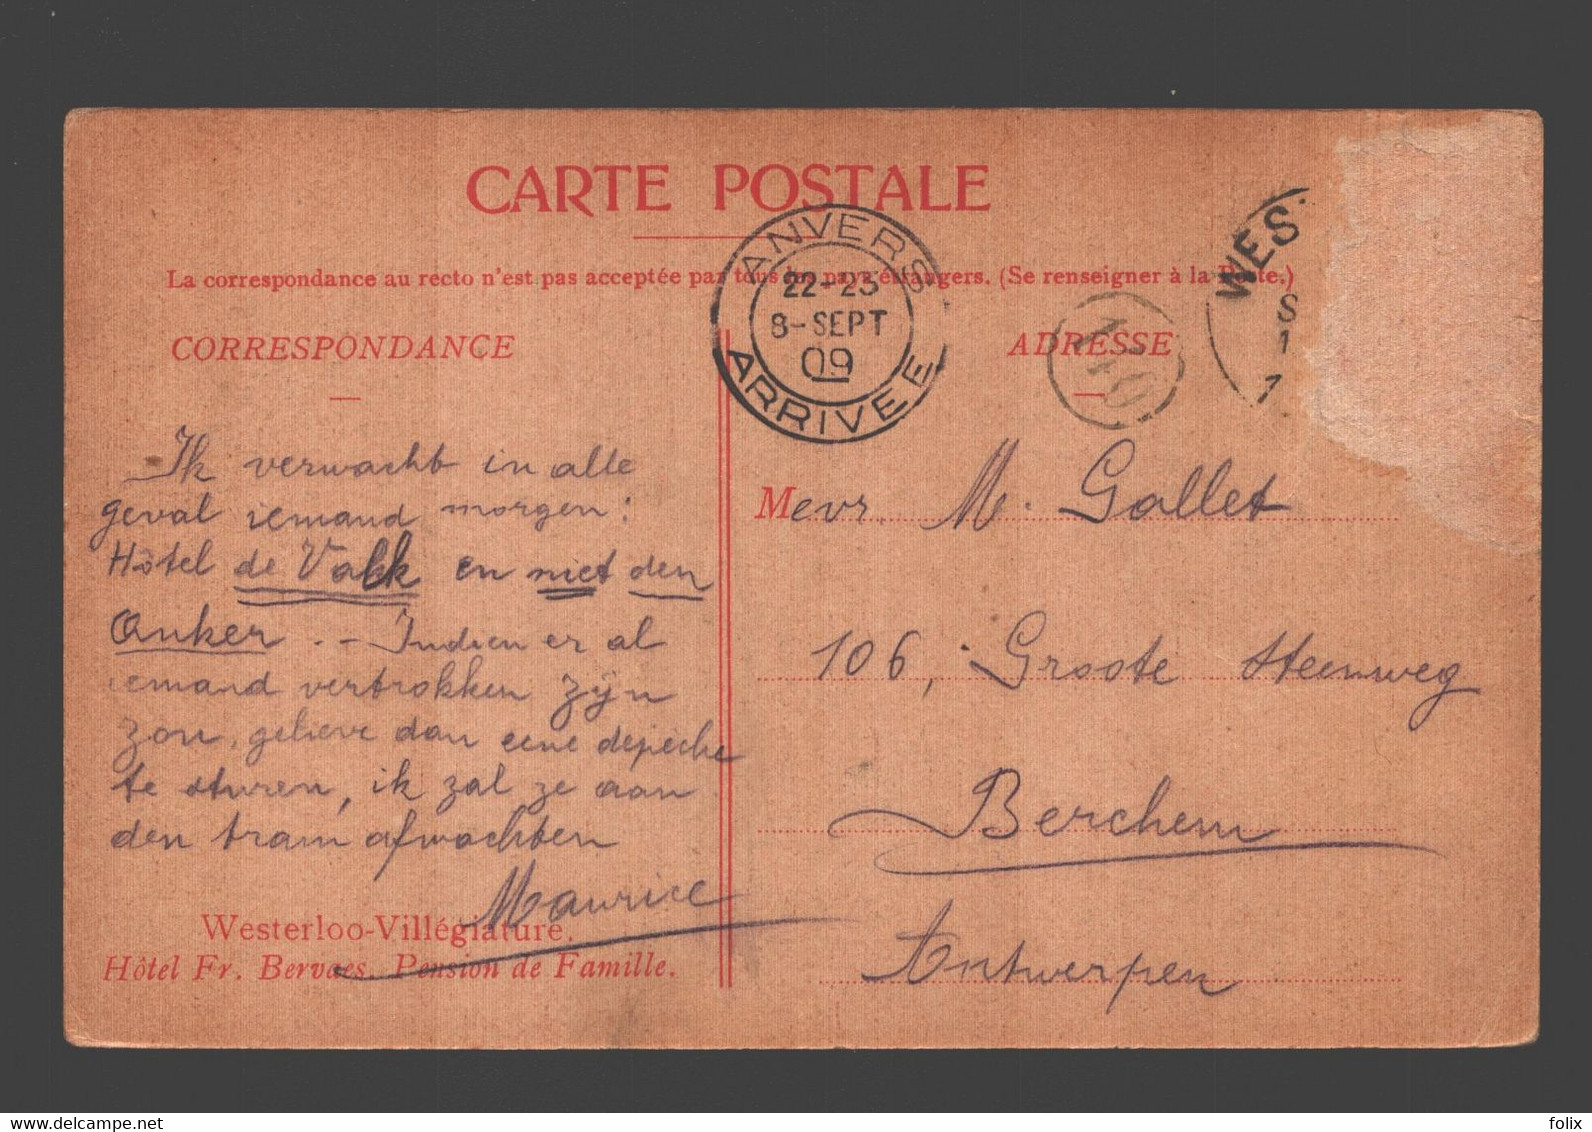 CARTE POSTALE
La correspondance au recto n'est pas acceptée par tous les pays étrangers. (Se renseigner à la Poste.)
ANVERS
22-23
8-SEPT
09
ARRIVEE
WES
S
1
7
CORRESPONDANCE
ADRESSE
Ik verwacht in alle
geval iemand morgen:
Hôtel de Valk en niet den
Anker. - Indien er al
iemand vertrokken zijn
zou, gelieve dan eene depeche
te sturen, ik zal ze aan
den tram afwachten
Maurice
Westerloo-Villégiature.
Hôtel Fr. Bervoes. Pension de Famille.
Mevr. M. Gallet
106, Groote Steenweg
Berchem
Antwerpen
www.delcampe.net
folix